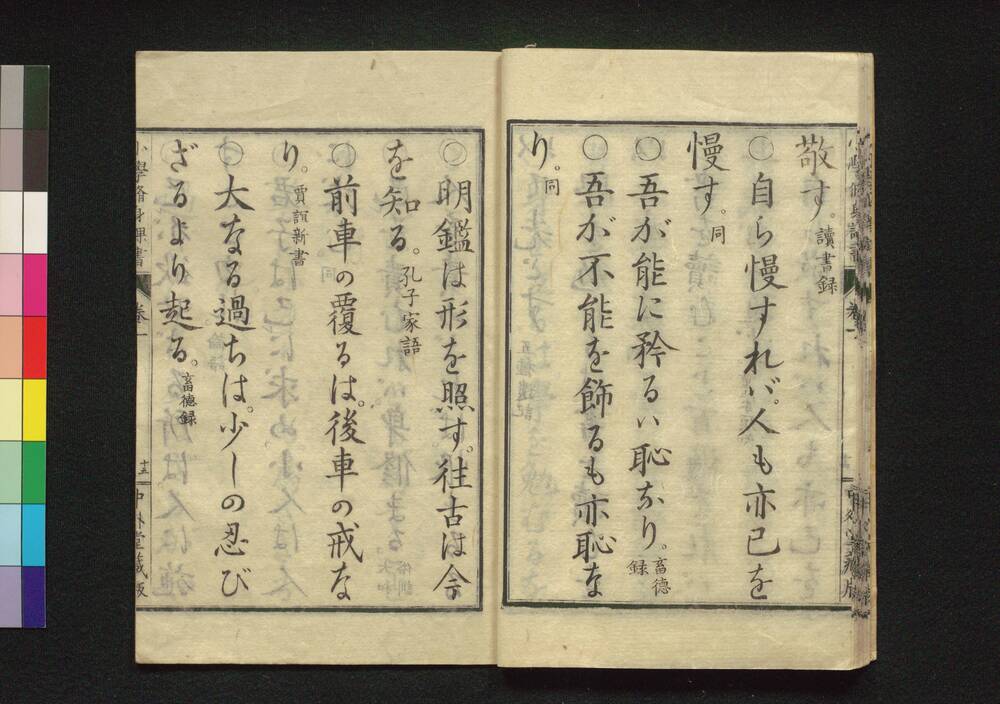 敬す。讀書録
○自ら慢すれバ、人も亦已を
慢す。同
○吾が能に矜るハ恥なり。畜德録
○吾が不能を飾るも亦恥な
り。同
○明鑑は形を照す。往古は今
を知る。孔子家語
○前車の覆るは、後車の戒な
り。賈誼新書
○大なる過ちは、少しの忍び
ざるより起る。畜德録
小學脩身課書
卷一
十五
中外堂藏版